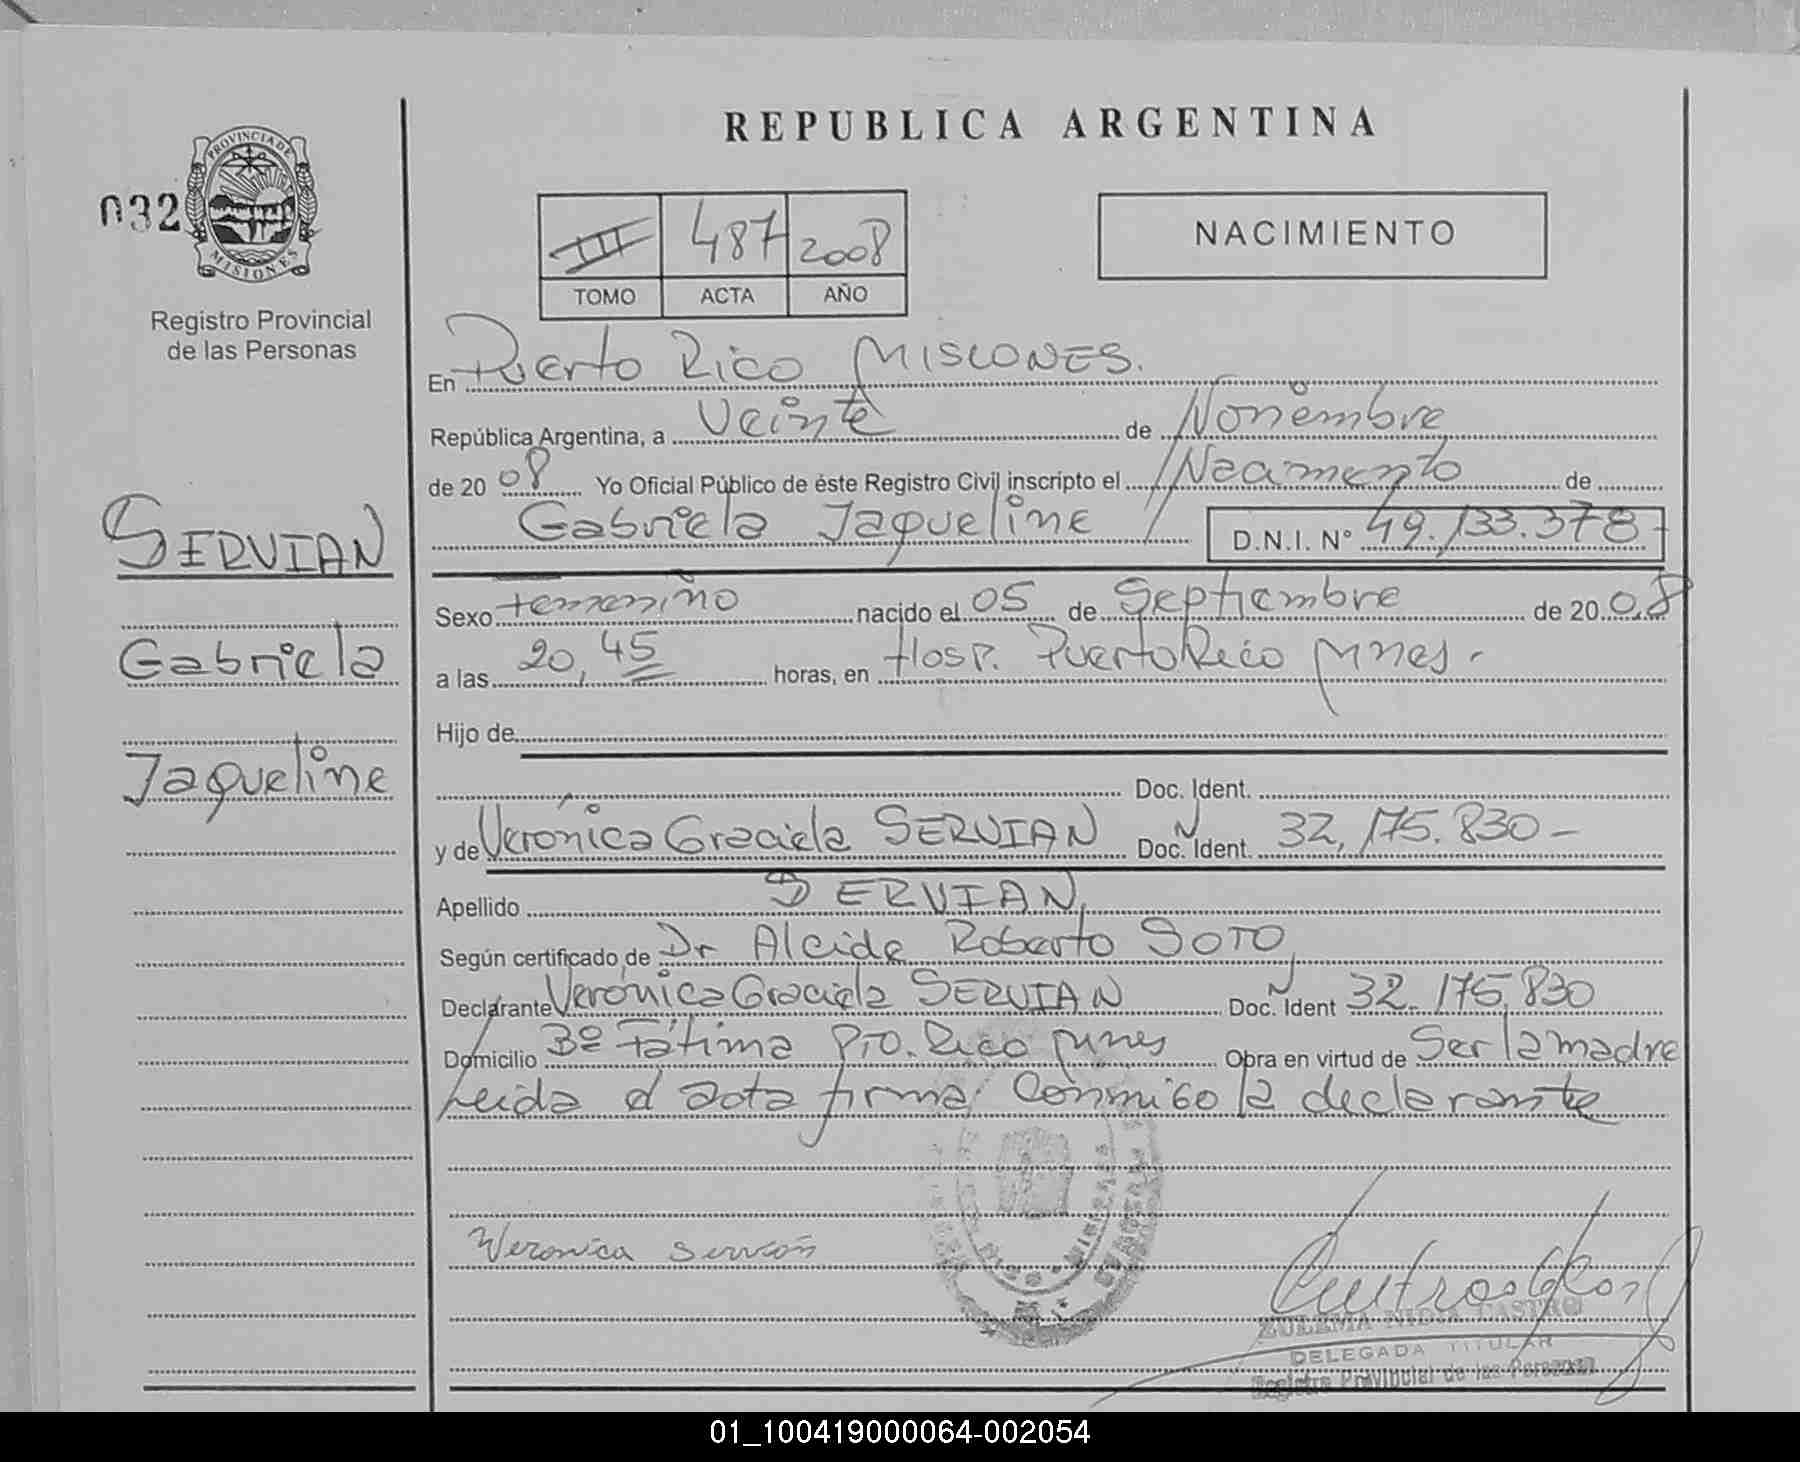 REPUBLICA ARGENTINA
PROVINCIA DE
MISIONES
032
Registro Provincial
de las Personas
III 487 2008
TOMO ACTA AÑO
NACIMIENTO
SERVIAN
Gabriela
Jaqueline
En Puerto Rico MISIONES.
República Argentina, a Veinte de Noviembre
de 20 08 Yo Oficial Público de éste Registro Civil inscripto el Nacimiento de
Gabriela Jaqueline D.N.I. Nº 49.133.378-
Sexo femenino nacido el 05 de Septiembre de 20 08
a las 20,45 horas, en Hosp. Puerto Rico Mnes.
Hijo de
Doc. Ident.
y de Verónica Graciela SERVIAN Doc. Ident. 32.175.830-
Apellido SERVIAN
Según certificado de Dr Alcide Roberto SOTO
Declarante Verónica Graciela SERVIAN Doc. Ident 32.175.830
Domicilio Bº Fátima Pto. Rico Mnes Obra en virtud de Ser la madre
Leida el acta firma conmigo la declarante
Veronica Servián
ZULEMA NIDIA CASTRO
DELEGADA TITULAR
Registro Provincial de las Personas
01_100419000064-002054